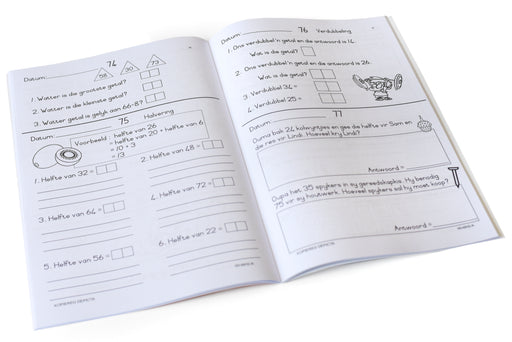 74
Datum:
58 30 73
1. Watter is die grootste getal?
2. Watter is die kleinste getal?
3. Watter getal is gelyk aan 66-8?
75
Datum: Halvering
Voorbeeld : helfte van 26
= helfte van 20 + helfte van 6
= 10 + 3
= 13
1. Helfte van 32 =
2. Helfte van 48 =
3. Helfte van 64 =
4. Helfte van 72 =
5. Helfte van 56 =
6. Helfte van 22 =
KOPIEREG BEPERK
76
Datum: Verdubbeling
1. Ons verdubbel 'n getal en die antwoord is 14.
Wat is die getal?
2. Ons verdubbel 'n getal en die antwoord is 30.
Wat is die getal?
3. Verdubbel 34 =
4. Verdubbel 25 =
77
Datum:
Ouma bak 24 kolwyntjies en gee die helfte vir Sam en
die res vir Lindi. Hoeveel kry Lindi?
Antwoord =
Oupa het 35 spykers in sy gereedskapkis. Hy benodig
75 vir sy houtwerk. Hoeveel spykers sal hy moet koop?
Antwoord =
KOPIEREG BEPERK